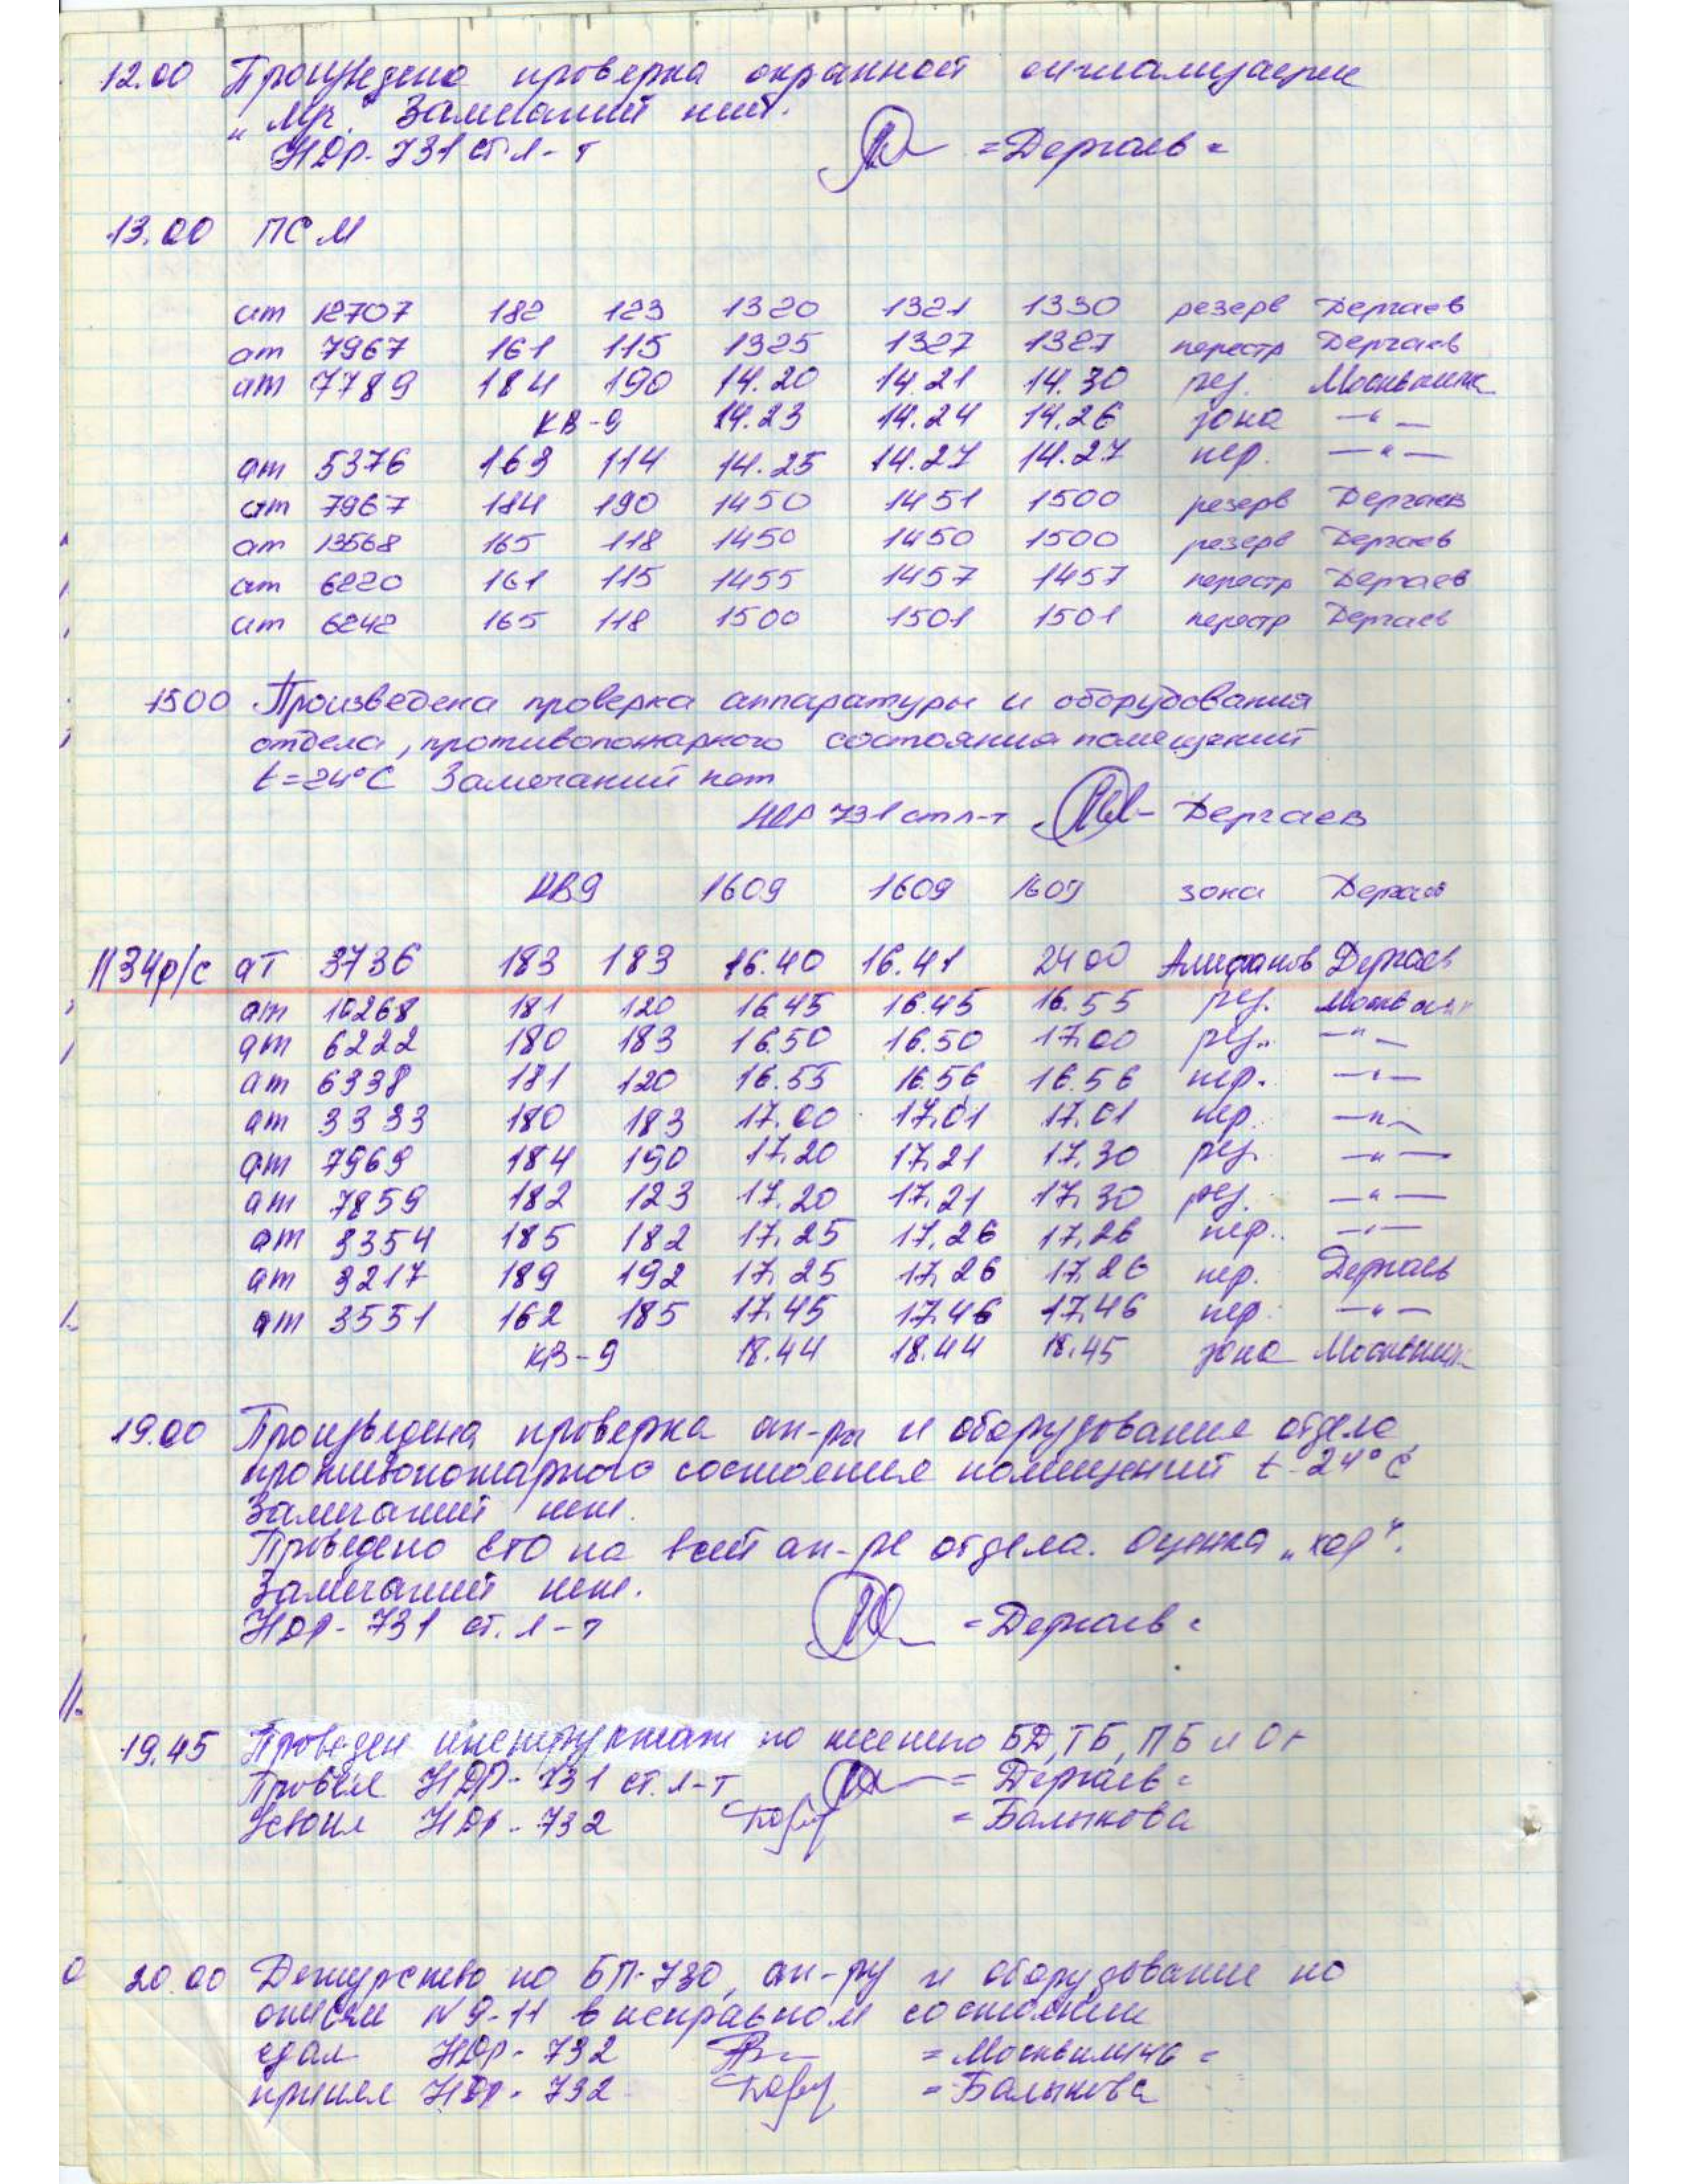 12.00 Произведена проверка охранной сигнализации
„Мр." Замечаний нет.
НДР-731 ст. л-т =Дергаев=
13.00 ПСМ
ат 12707 182 123 1320 1321 1330 резерв Дергаев
ат 7967 161 115 1325 1327 1327 перестр Дергаев
ат 7789 184 190 14.20 14.21 14.30 рез.
КВ-9 14.23 14.24 14.26 зона —"—
ат 5376 163 114 14.25 14.27 14.27 пер. —"—
ат 7967 184 190 1450 1451 1500 резерв Дергаев
ат 13568 165 118 1450 1450 1500 резерв Дергаев
ат 6220 161 115 1455 1457 1457 перестр Дергаев
ат 6242 165 118 1500 1501 1501 перестр Дергаев
1500 Произведена проверка аппаратуры и оборудования
отдела, противопожарного состояния помещений
t=24°C Замечаний нет
НДР 731 ст л-т Дергаев
КВ9 1609 1609 1609 зона Дергаев
1134р/с ат 3736 183 183 16.40 16.41 2400 Алифанов Дергаев
ат 10268 181 120 16.45 16.45 16.55 рез.
ат 6222 180 183 16.50 16.50 17.00 рез. —"—
ат 6338 181 120 16.55 16.56 16.56 пер. —"—
ат 3333 180 183 17.00 17.01 17.01 пер. —"—
ат 7969 184 190 17.20 17.21 17.30 рез. —"—
ат 7859 182 123 17.20 17.21 17.30 рез. —"—
ат 3354 185 182 17.25 17.26 17.26 пер. —"—
ат 3217 189 192 17.25 17.26 17.26 пер. Дергаев
ат 3551 162 185 17.45 17.46 17.46 пер. —"—
КВ-9 18.44 18.44 18.45 зона
19.00 Произведена проверка ап-ры и оборудование отдела,
противопожарного состояния помещений t-24°C
Замечаний нет.
Проведено ЕТО на всей ап-ре отдела. Оценка „хор".
Замечаний нет.
НДР-731 ст. л-т =Дергаев=
19.45 Проведен инструктаж по несению БД, ТБ, ПБ и
Провел НДР-731 ст. л-т =Дергаев=
Усвоил НДР-732 =Балыкова
20.00 Дежурство по БП-730, ап-ру и оборудование по
описи №9-11 в исправном состоянии
сдал НДР-732
принял НДР-732 =Балыкова